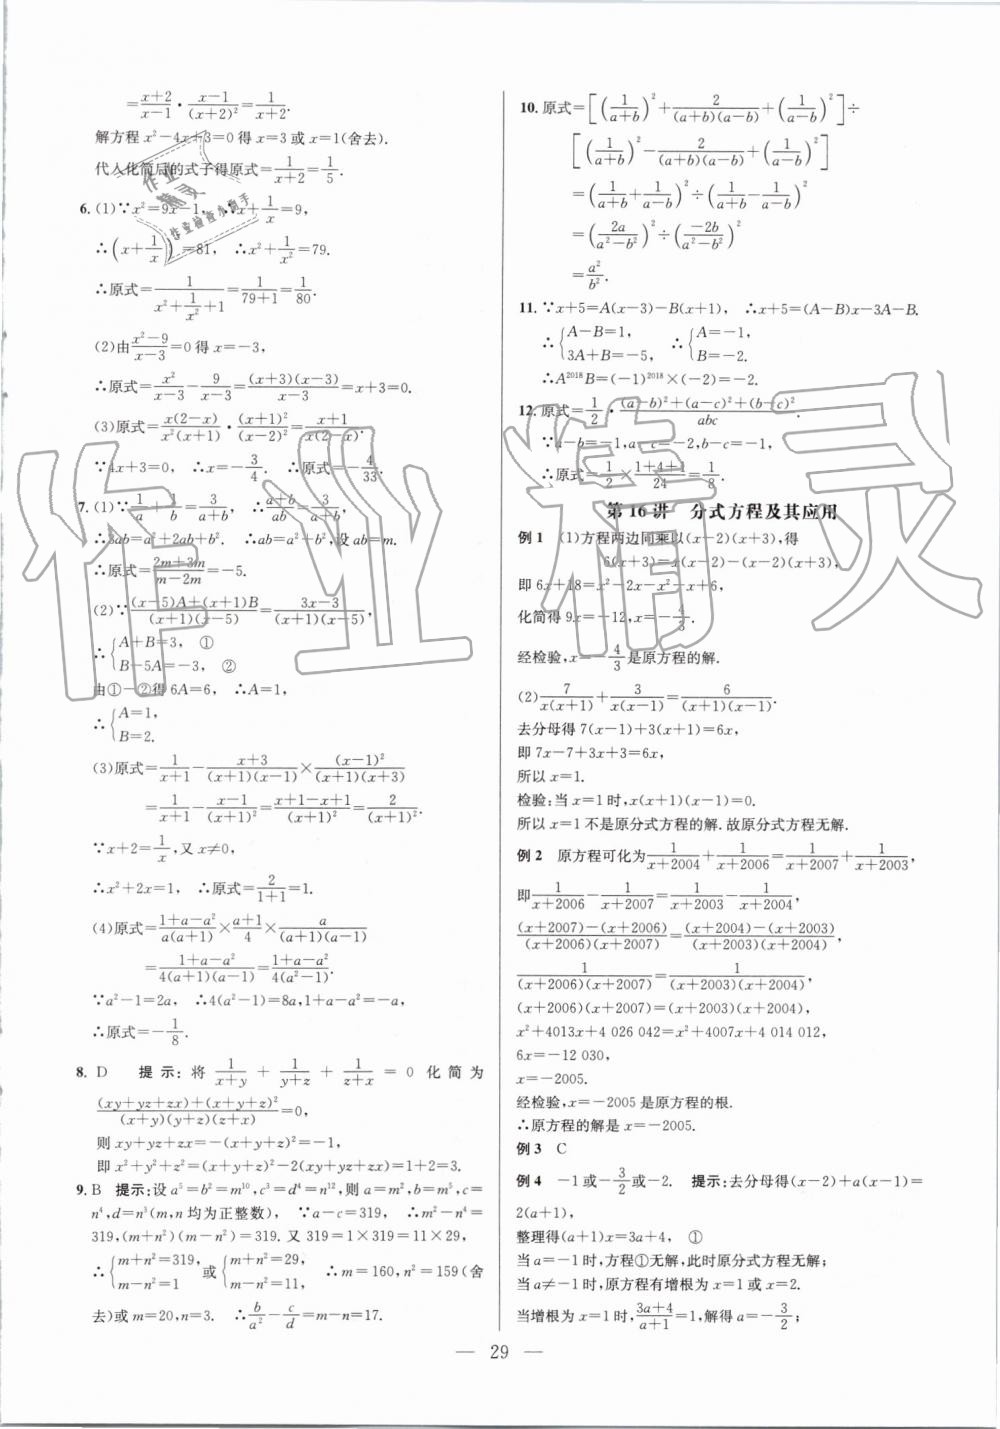 =x+2/x−1·x−1/(x+2)²=1/x+2.
解方程 x²−4x+3=0得 x=3或 x=1(舍去).
代入化简后的式子得原式=1/x+2=1/5.
6. (1)∵x²=9x−1, ∴x+1/x=9,
∴(x+1/x)²=81, ∴x²+1/x²=79.
∴原式=1/(x²+1/x²+1)=1/79+1=1/80.
(2)由x²−9/x−3=0得 x=−3,
∴原式=x²/x−3−9/x−3=(x+3)(x−3)/x−3=x+3=0.
(3)原式=x(2−x)/x²(x+1)·(x+1)²/(x−2)²=x+1/x(2−x).
∵4x+3=0, ∴x=−3/4. ∴原式=−4/33.
7. (1)∵1/a+1/b=3/a+b, ∴a+b/ab=3/a+b,
∴3ab=a²+2ab+b². ∴ab=a²+b²,设ab=m.
∴原式=2m+3m/m−2m=−5.
(2)∵(x−5)A+(x+1)B/(x+1)(x−5)=3x−3/(x+1)(x−5),
∴{A+B=3, ①
B−5A=−3, ②
由①−②得 6A=6, ∴A=1,
∴{A=1,
B=2.
(3)原式=1/x+1−x+3/(x+1)(x−1)×(x−1)²/(x+1)(x+3)
=1/x+1−x−1/(x+1)²=x+1−x+1/(x+1)²=2/(x+1)².
∵x+2=1/x,又 x≠0,
∴x²+2x=1, ∴原式=2/1+1=1.
(4)原式=1+a−a²/a(a+1)×a+1/4×a/(a+1)(a−1)
=1+a−a²/4(a+1)(a−1)=1+a−a²/4(a²−1).
∵a²−1=2a, ∴4(a²−1)=8a,1+a−a²=−a,
∴原式=−1/8.
8. D 提示:将 1/x+y + 1/y+z + 1/z+x = 0 化简为
(xy+yz+zx)+(x+y+z)²/(x+y)(y+z)(z+x)=0,
则 xy+yz+zx=−(x+y+z)²=−1,
即 x²+y²+z²=(x+y+z)²−2(xy+yz+zx)=1+2=3.
9. B 提示:设 a⁵=b²=m¹⁰,c³=d⁴=n¹²,则 a=m²,b=m⁵,c=
n⁴,d=n³(m,n 均为正整数), ∵a−c=319, ∴m²−n⁴=
319,(m+n²)(m−n²)=319. 又 319=1×319=11×29,
∴{m+n²=319, m−n²=1 或 {m+n²=29, m−n²=11, ∴m=160,n²=159(舍
去)或 m=20,n=3. ∴b/a²−c/d=m−n=17.
10. 原式=[(1/a+b)²+2/(a+b)(a−b)+(1/a−b)²]÷
[(1/a+b)²−2/(a+b)(a−b)+(1/a−b)²]
=(1/a+b+1/a−b)²÷(1/a+b−1/a−b)²
=(2a/a²−b²)²÷(−2b/a²−b²)²
=a²/b².
11. ∵x+5=A(x−3)−B(x+1), ∴x+5=(A−B)x−3A−B.
∴{A−B=1, 3A+B=−5, ∴{A=−1, B=−2.
∴A²⁰¹⁸B=(−1)²⁰¹⁸×(−2)=−2.
12. 原式=1/2·(a−b)²+(a−c)²+(b−c)²/abc.
∵a−b=−1,a−c=−2,b−c=−1,
∴原式=1/2×1+4+1/24=1/8.
第 16 讲 分式方程及其应用
例 1 (1)方程两边同乘以(x−2)(x+3),得
6(x+3)=x(x−2)−(x−2)(x+3),
即 6x+18=x²−2x−x²−x+6,
化简得 9x=−12,x=−4/3.
经检验,x=−4/3是原方程的解.
(2)7/x(x+1)+3/x(x−1)=6/(x+1)(x−1).
去分母得 7(x−1)+3(x+1)=6x,
即 7x−7+3x+3=6x,
所以 x=1.
检验:当 x=1时,x(x+1)(x−1)=0.
所以 x=1 不是原分式方程的解.故原分式方程无解.
例 2 原方程可化为1/x+2004+1/x+2006=1/x+2007+1/x+2003,
即1/x+2006−1/x+2007=1/x+2003−1/x+2004,
(x+2007)−(x+2006)/(x+2006)(x+2007)=(x+2004)−(x+2003)/(x+2003)(x+2004),
1/(x+2006)(x+2007)=1/(x+2003)(x+2004),
(x+2006)(x+2007)=(x+2003)(x+2004),
x²+4013x+4 026 042=x²+4007x+4 014 012,
6x=−12 030,
x=−2005.
经检验,x=−2005 是原方程的根.
∴原方程的解是 x=−2005.
例 3 C
例 4 −1或−3/2或−2. 提示:去分母得(x−2)+a(x−1)=
2(a+1),
整理得(a+1)x=3a+4, ①
当 a=−1时,方程①无解,此时原分式方程无解;
当 a≠−1时,原方程有增根为 x=1或 x=2.
当增根为 x=1时,3a+4/a+1=1,解得 a=−3/2;
— 29 —
作业精灵
作业
精灵
作业检查小助手